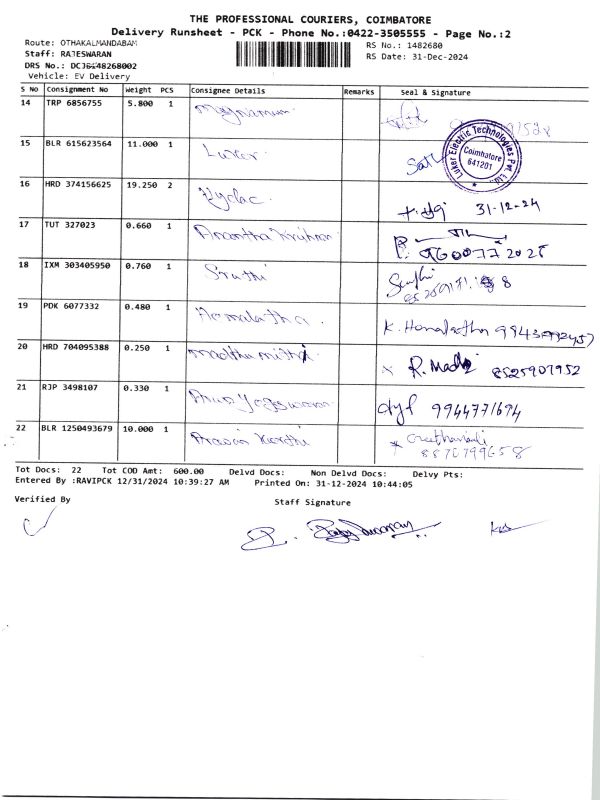 THE PROFESSIONAL COURIERS, COIMBATORE
Delivery Runsheet - PCK - Phone No.:0422-3505555 - Page No.:2
Route: OTHAKALMANDABAM RS No.: 1482680
Staff: RAJESWARAN RS Date: 31-Dec-2024
DRS No.:
Vehicle: EV Delivery
S No Consignment No Weight PCS Consignee Details Remarks Seal & Signature
14 TRP 6856755 5.800 1
15 BLR 615623564 11.000 1 Luker
Luker Electric Technologies Pvt. Ltd
Coimbatore
641201
16 HRD 374156625 19.250 2 31-12-24
17 TUT 327023 0.660 1 Anantha Krishnan
18 IXM 303405950 0.760 1 Sruthi
19 PDK 6077332 0.480 1 Hemalatha. K. Hemalatha
20 HRD 704095388 0.250 1 madhumisha x R. Madhu 8525907952
21 RJP 3498107 0.330 1 9944771694
22 BLR 1250493679 10.000 1 8870799658
Tot Docs: 22 Tot COD Amt: 600.00 Delvd Docs: Non Delvd Docs: Delvy Pts:
Entered By :RAVIPCK 12/31/2024 10:39:27 AM Printed On: 31-12-2024 10:44:05
Verified By Staff Signature